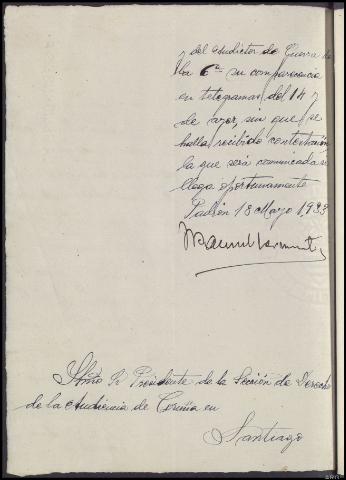 y del Auditor de Guerra de
la 6ª su comparecencia
en telegramas del 14 y
de ayer, sin que se
halla recibido contestación
la que será comunicada si
llega oportunamente
Padrón 18 Mayo 1933
Iltmo Sr Presidente de la Sección de Derecho
de la Audiencia de Coruña en
Santiago